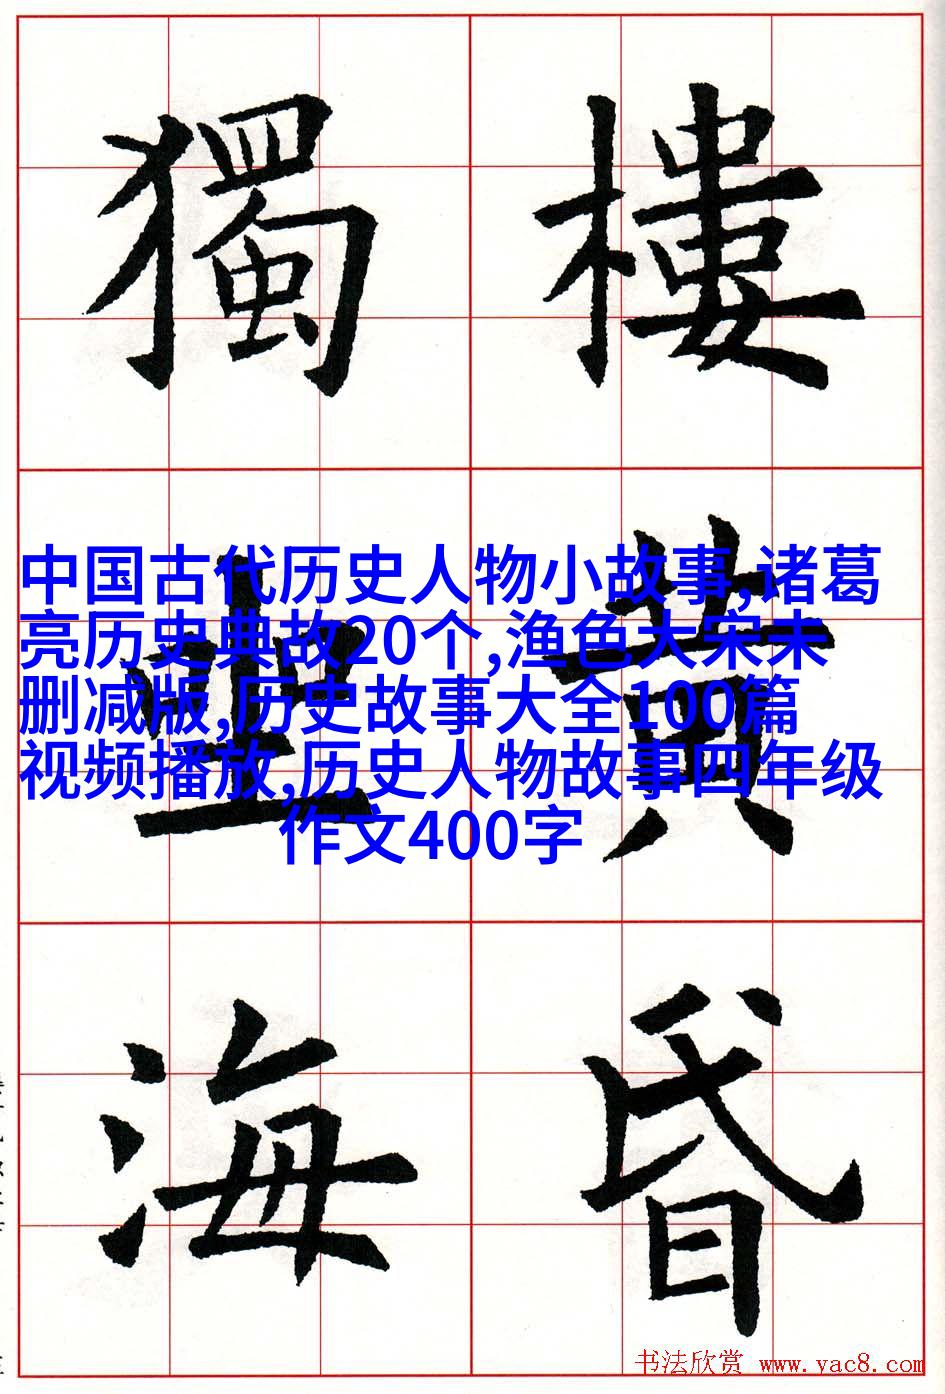 樓黄昏
獨坐海
中国古代历史人物小故事,诸葛
亮历史典故20个,渔色大宋未
删减版,历史故事大全100篇
视频播放,历史人物故事四年级
作文400字
书法欣赏 www.yac8.com